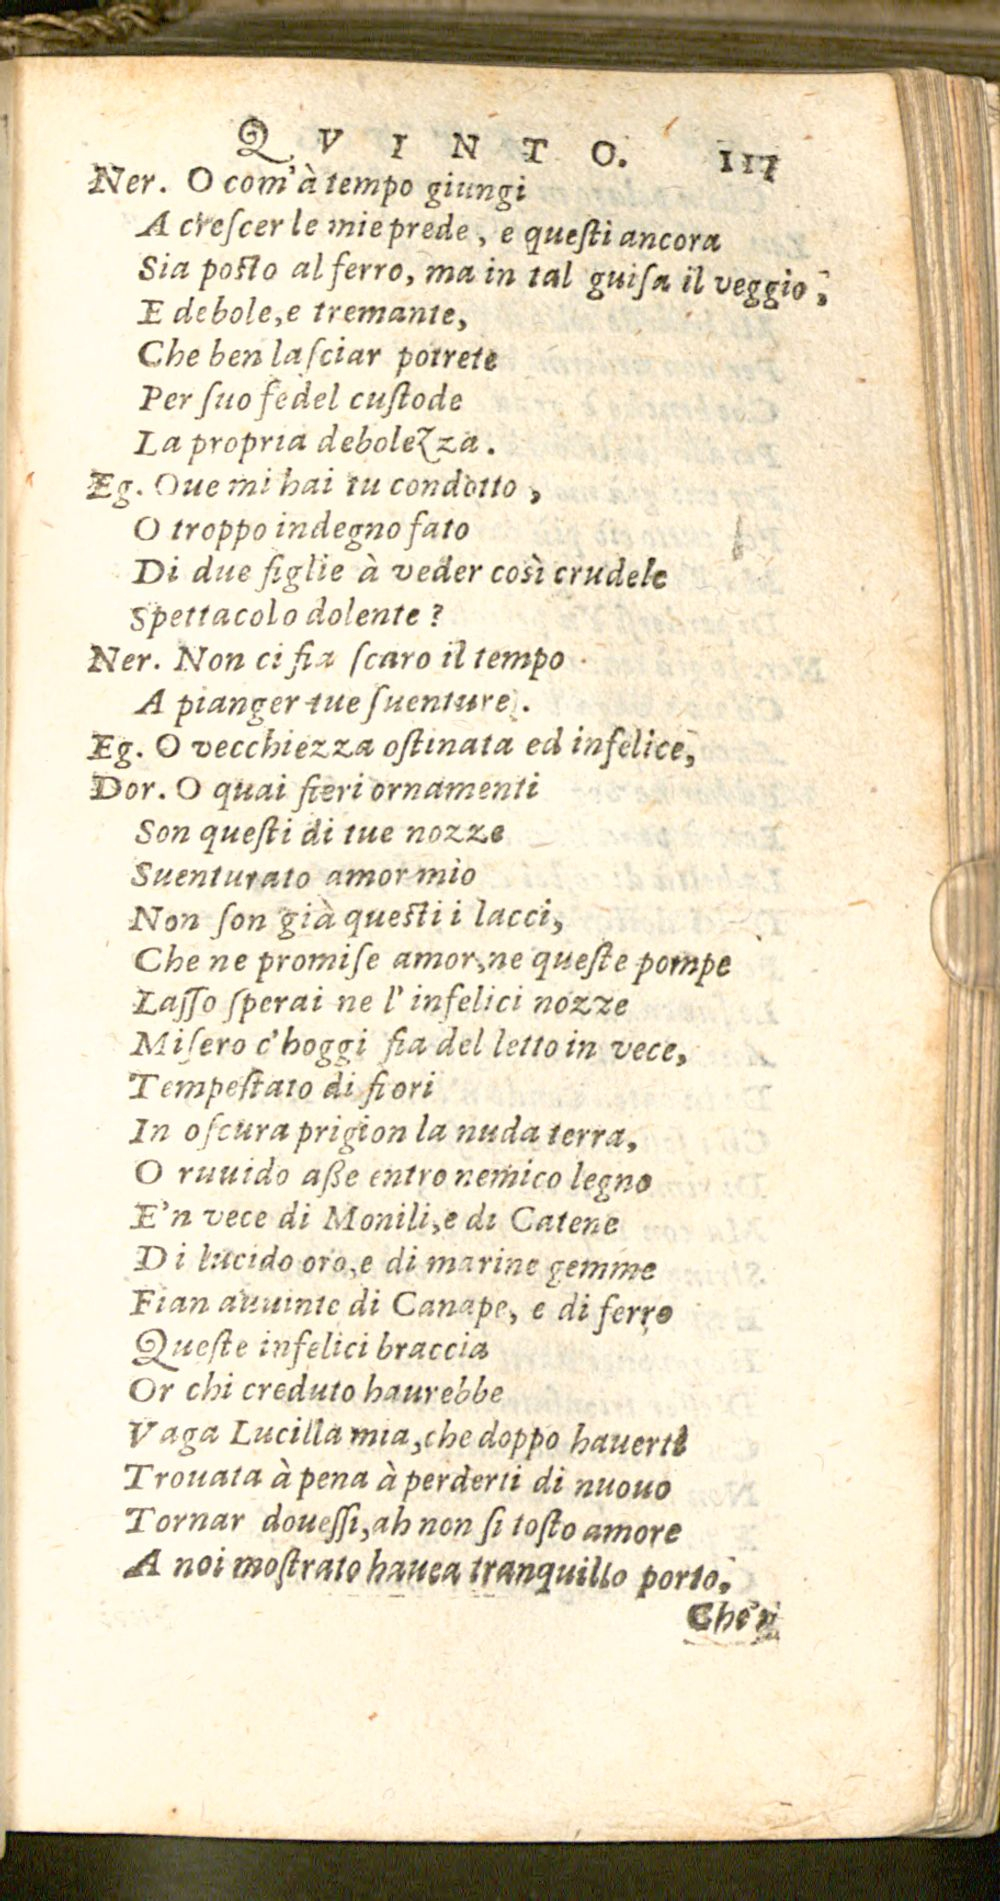 QVINTO. 117
Ner. O com'à tempo giungi
A creſcer le mie prede, e queſti ancora
Sia poſto al ferro, ma in tal guiſa il veggio,
E debole, e tremante,
Che ben laſciar potrete
Per ſuo fedel cuſtode
La propria debolezza.
Eg. Oue mi hai tu condotto,
O troppo indegno fato
Di due figlie à veder così crudele
Spettacolo dolente?
Ner. Non ci fia ſcaro il tempo
A pianger tue ſuenture.
Eg. O vecchiezza oſtinata ed infelice,
Dor. O quai fieri ornamenti
Son queſti di tue nozze
Suenturato amor mio
Non ſon già queſti i lacci,
Che ne promiſe amor, ne queſte pompe
Laſſo ſperai ne l'infelici nozze
Miſero c'hoggi fia del letto in vece,
Tempeſtato di fiori
In oſcura prigion la nuda terra,
O ruuido aße entro nemico legno
E'n vece di Monili, e di Catene
Di lucido oro, e di marine gemme
Fian auuinte di Canape, e di ferro
Queſte infelici braccia
Or chi creduto haurebbe
Vaga Lucilla mia, che doppo hauerti
Trouata à pena à perderti di nuouo
Tornar doueſſi, ah non ſi toſto amore
A noi moſtrato hauea tranquillo porto,
Che'n